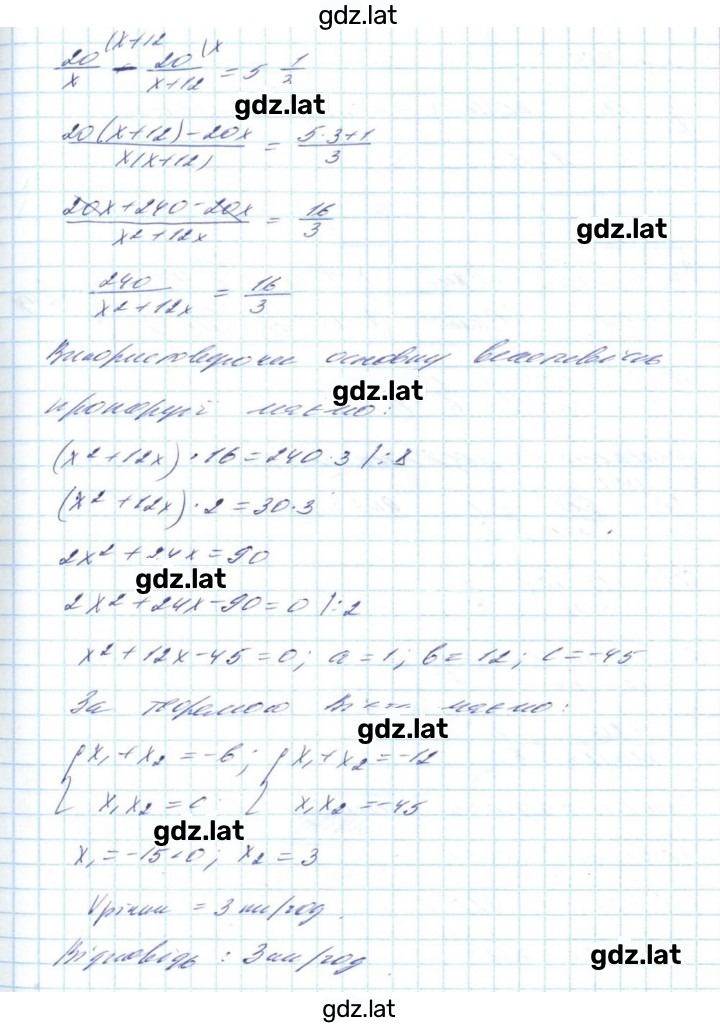 gdz.lat
20/x (x+12 - 20/(x+12) (x = 5 1/3
gdz.lat
(20(x+12)-20x)/(x(x+12)) = (5·3+1)/3
(20x+240-20x)/(x²+12x) = 16/3
gdz.lat
240/(x²+12x) = 16/3
Використовуючи основну властивість
gdz.lat
пропорції маємо:
(x²+12x)·16=240·3 |:8
(x²+12x)·2=30·3
2x²+24x=90
gdz.lat
2x²+24x-90=0 |:2
x²+12x-45=0; a=1; b=12; c=-45
За теоремою Вієта маємо:
gdz.lat
{x₁+x₂=-b; {x₁+x₂=-12
x₁x₂=c x₁x₂=-45
gdz.lat
x₁=-15<0; x₂=3
Vрічки = 3 км/год.
Відповідь: 3 км/год
gdz.lat
gdz.lat